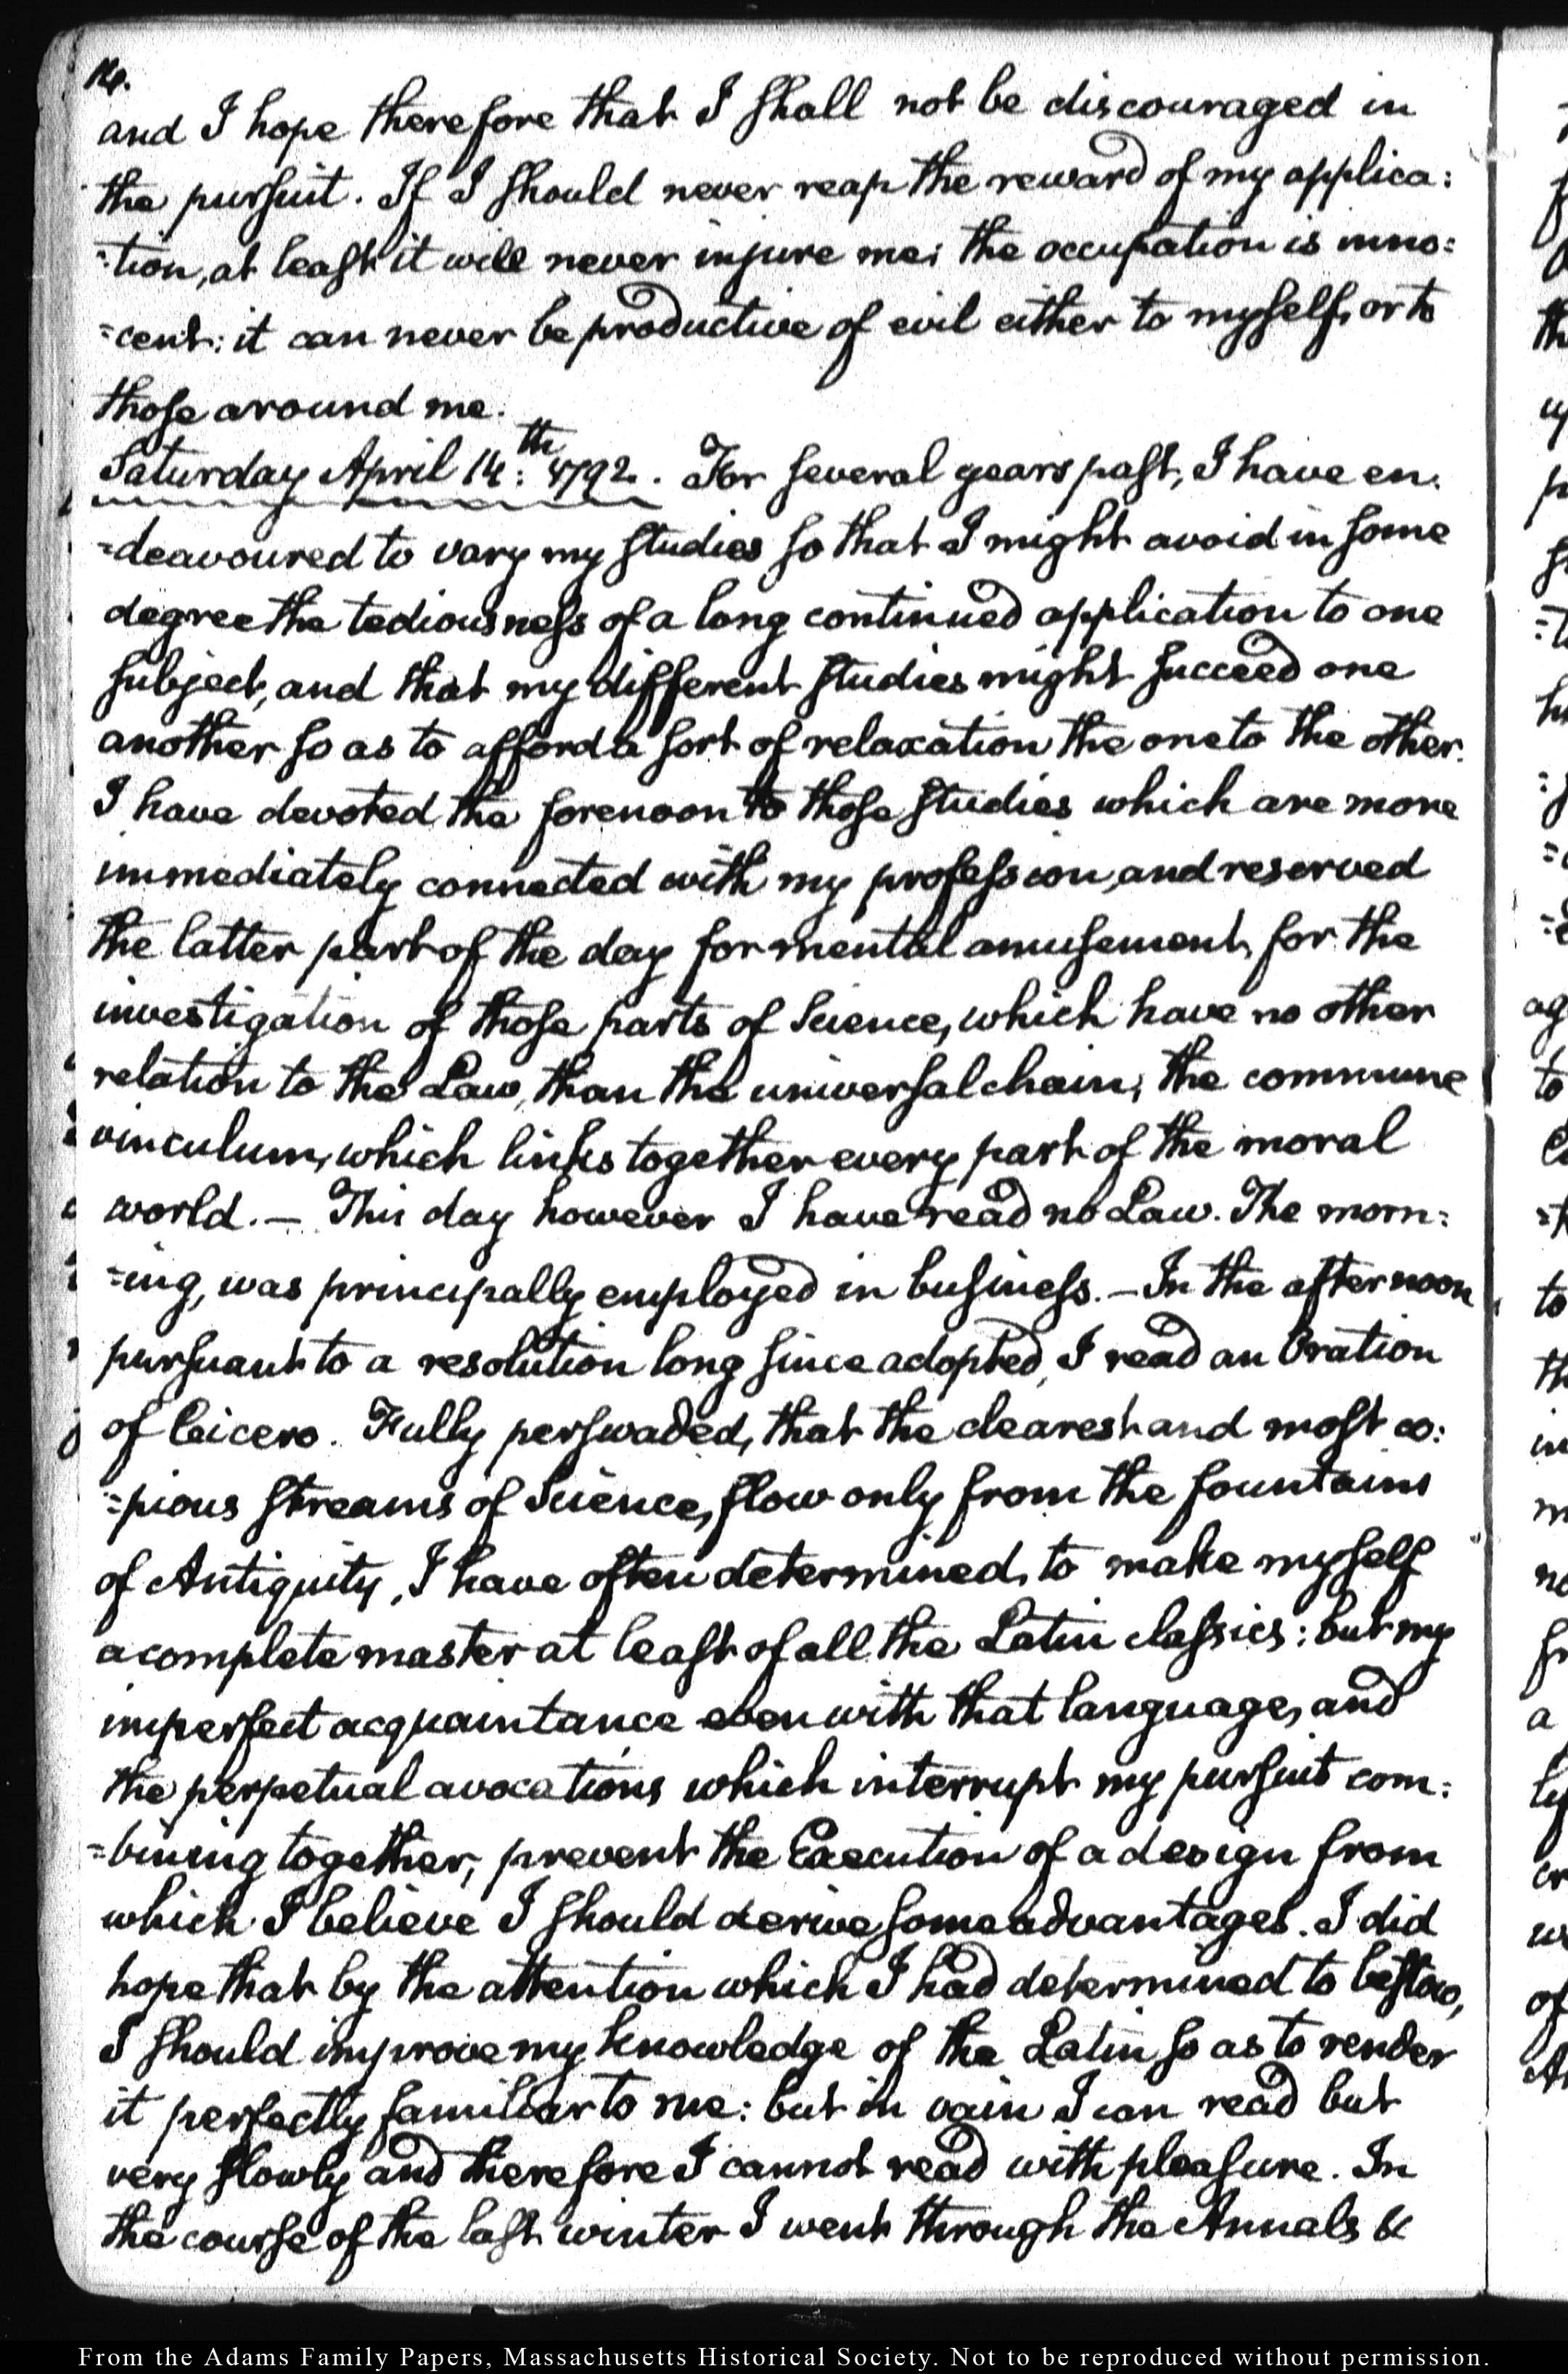 14.
and I hope therefore that I shall not be discouraged in
the pursuit. If I should never reap the reward of my applica:
=tion, at least it will never injure me; the occupation is inno=
=cent: it can never be productive of evil either to myself, or to
those around me.
Saturday April 14:th 1792. For several years past, I have en:
=deavoured to vary my studies so that I might avoid in some
degree the tediousness of a long continued application to one
subject, and that my different studies might succeed one
another so as to afford a sort of relaxation the one to the other.
I have devoted the forenoon to those studies which are more
immediately connected with my profession, and reserved
the latter part of the day for mental amusement, for the
investigation of those parts of Science, which have no other
relation to the Law, than the universal chain, the commune
vinculum, which links together every part of the moral
world. — This day however I have read no Law. The morn:
=ing, was principally employed in business. — In the afternoon
pursuant to a resolution long since adopted, I read an Oration
of Cicero. Fully perswaded, that the clearest and most co:
=pious streams of Science, flow only from the fountains
of Antiquity, I have often determined, to make myself
a complete master at least of all the Latin classics: but my
imperfect acquaintance even with that language, and
the perpetual avocations which interrupt my pursuit com:
=bining together, prevent the Execution of a design from
which I believe I should derive some advantages. I did
hope that by the attention which I had determined to bestow,
I should improve my knowledge of the Latin so as to render
it perfectly familiar to me: but in vain I can read but
very slowly and therefore I cannot read with pleasure. In
the course of the last winter I went through the Annals &
From the Adams Family Papers, Massachusetts Historical Society. Not to be reproduced without permission.